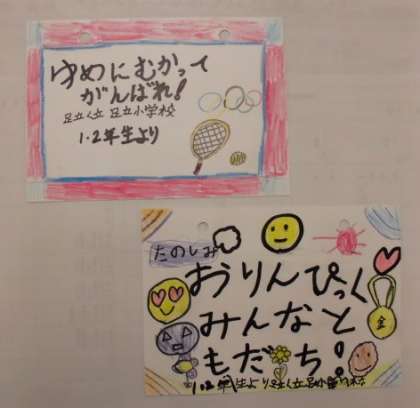 ゆめにむかって
がんばれ!
足立く立 足立小学校
1・2年生より
たのしみ
おりんぴっく
みんなと
もだち!
金
1・2年生より